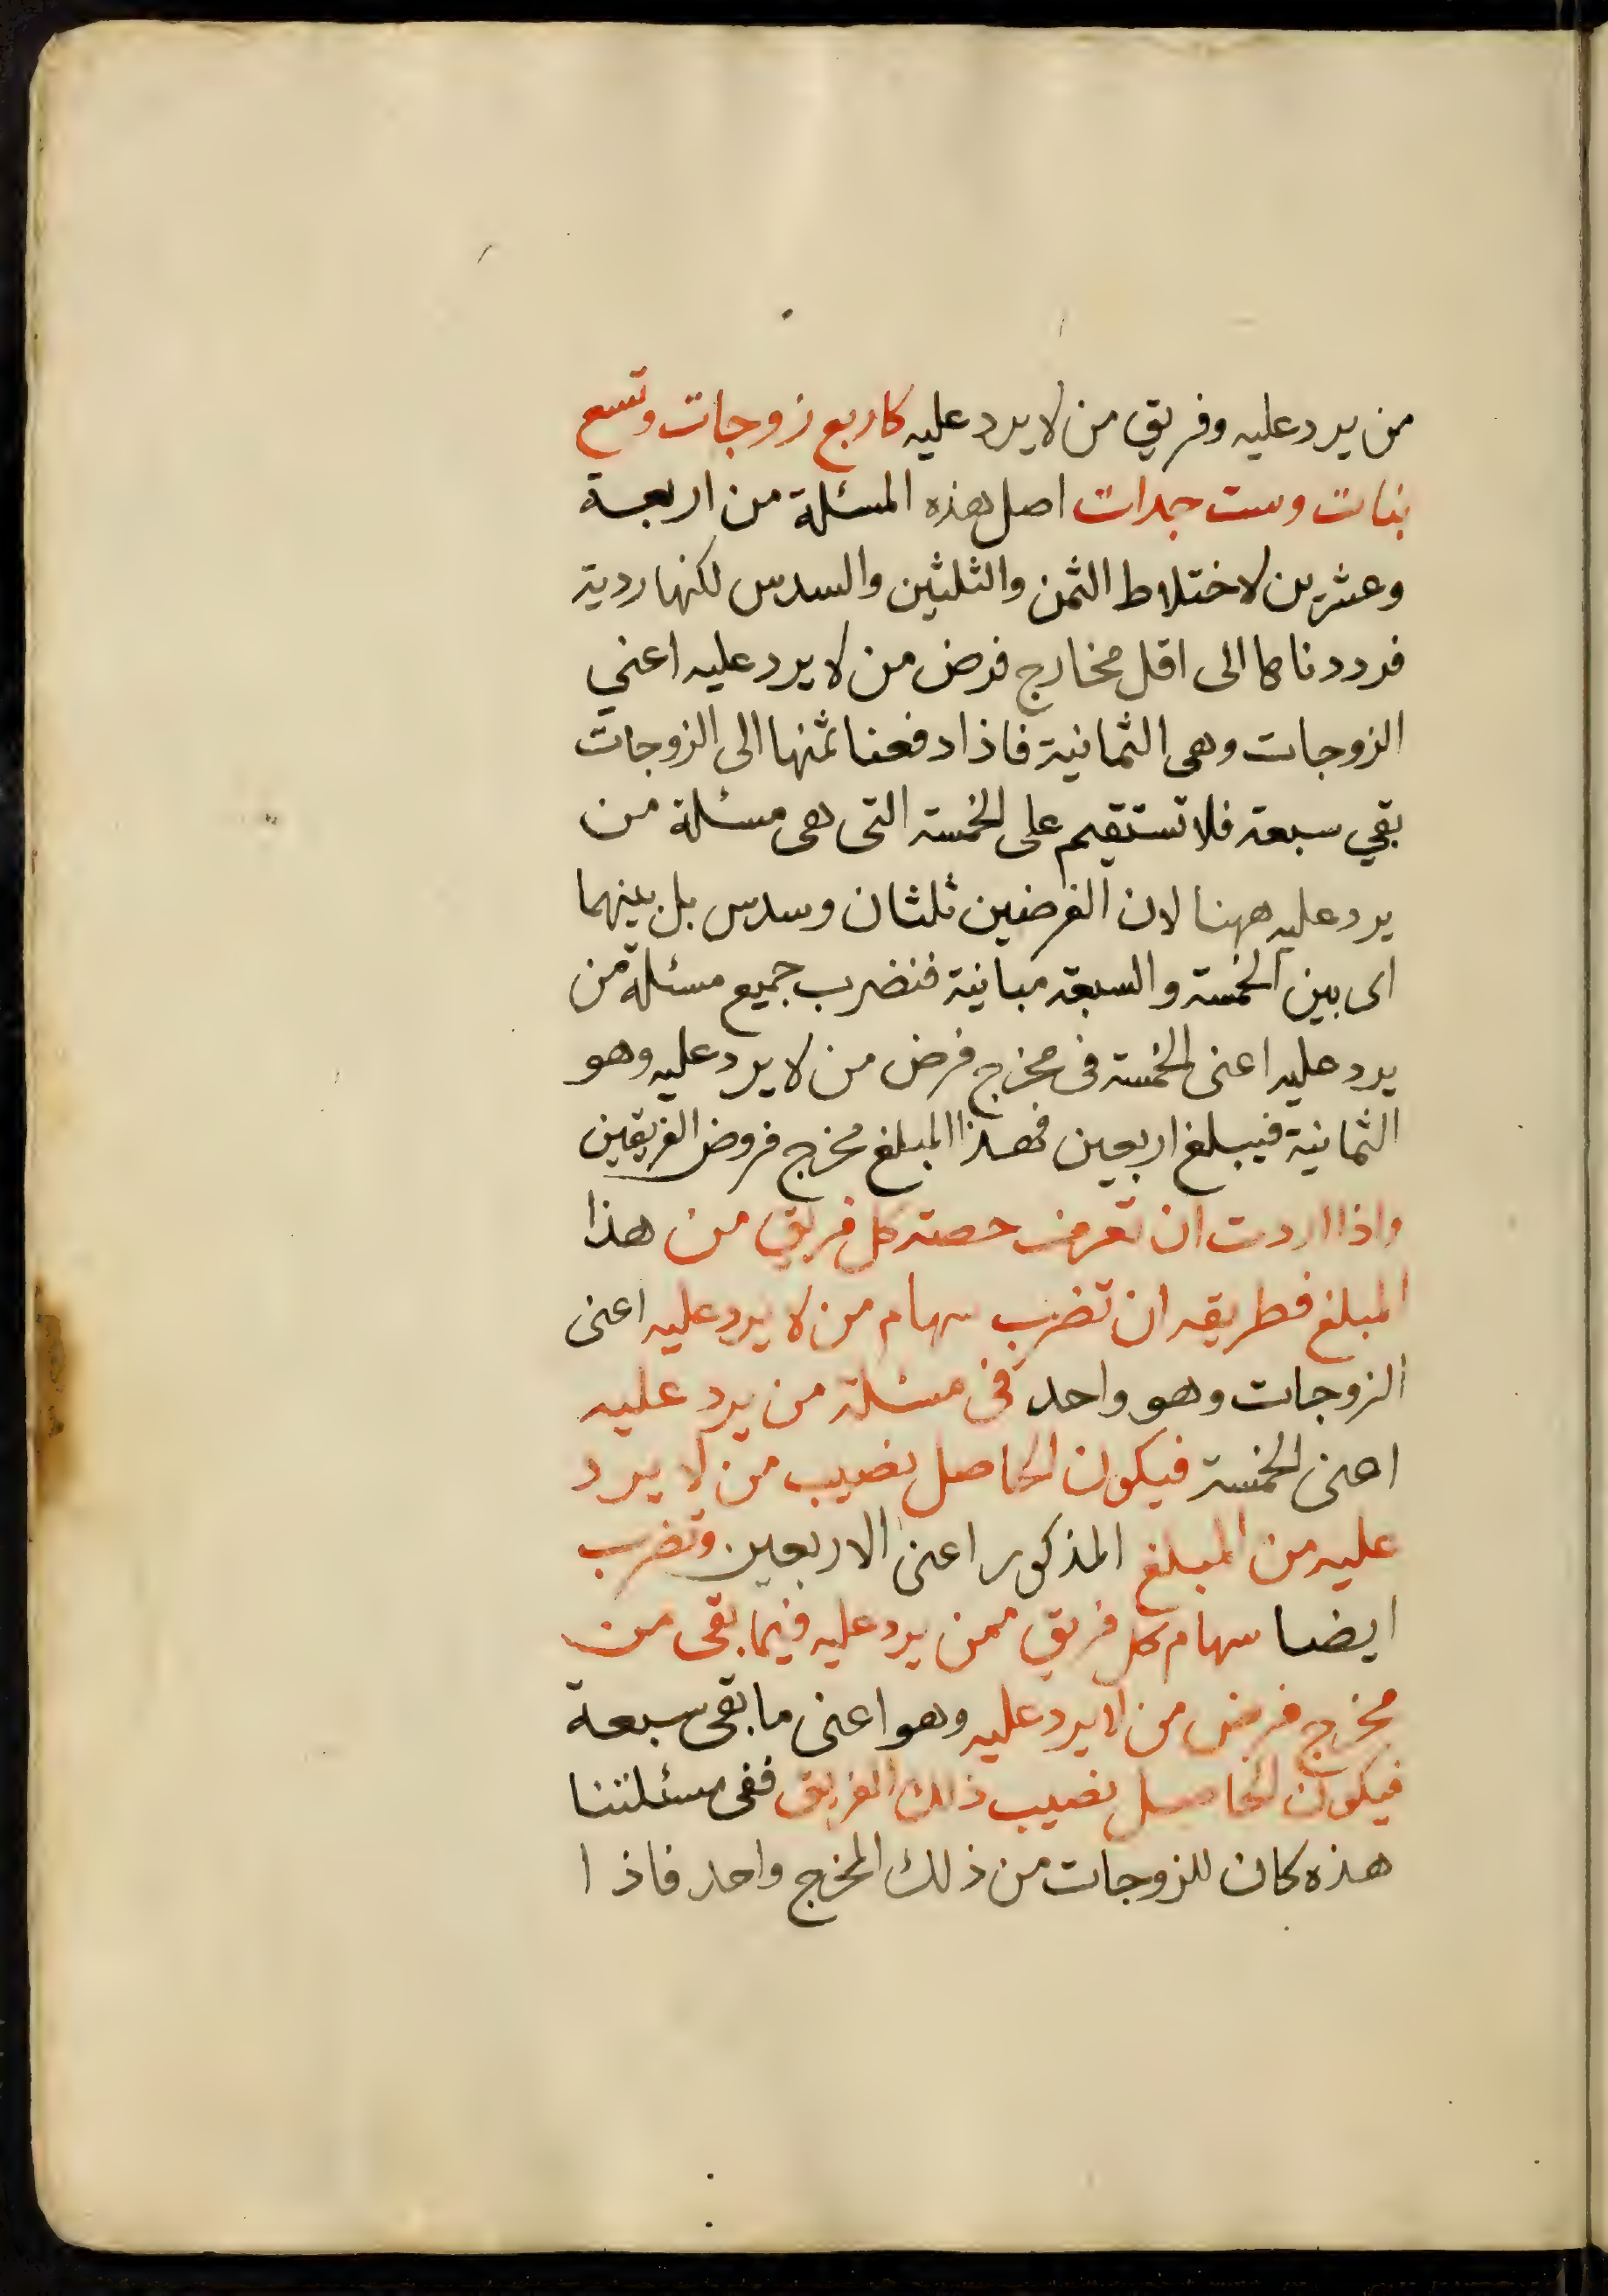 من يرد عليه وفريق من لا يرد عليه كاربع زوجات وتسع
بنات وست جدات اصل هذه المسئلة من اربعة
وعشرين لاختلاط الثمن والثلثين والسدس لكنها ردية
فرددناها الى اقل مخارج فرض من لا يرد عليه اعني
الزوجات وهى الثمانية فاذا دفعنا ثمنها الى الزوجات
بقي سبعة فلا تستقيم على الخمسة التى هى مسئلة من
يرد عليه ههنا لان الفرضين ثلثان وسدس بل بينهما
اى بين الخمسة والسبعة مباينة فنضرب جميع مسئلة من
يرد عليه اعنى الخمسة فى مخرج فرض من لا يرد عليه وهو
الثمانية فيبلغ اربعين فهذا المبلغ مخرج فروض الفريقين
واذا اردت ان تعرف حصة كل فريق من هذا
المبلغ فطريقه ان تضرب سهام من لا يرد عليه اعنى
الزوجات وهو واحد فى مسئلة من يرد عليه
اعنى الخمسة فيكون الحاصل نصيب من لا يرد
عليه من المبلغ المذكور اعنى الاربعين وتضرب
ايضا سهام كل فريق ممن يرد عليه فيما بقى من
مخرج فرض من لا يرد عليه وهو اعنى ما بقى سبعة
فيكون الحاصل نصيب ذلك الفريق ففى مسئلتنا
هذه كان للزوجات من ذلك المخرج واحد فاذا